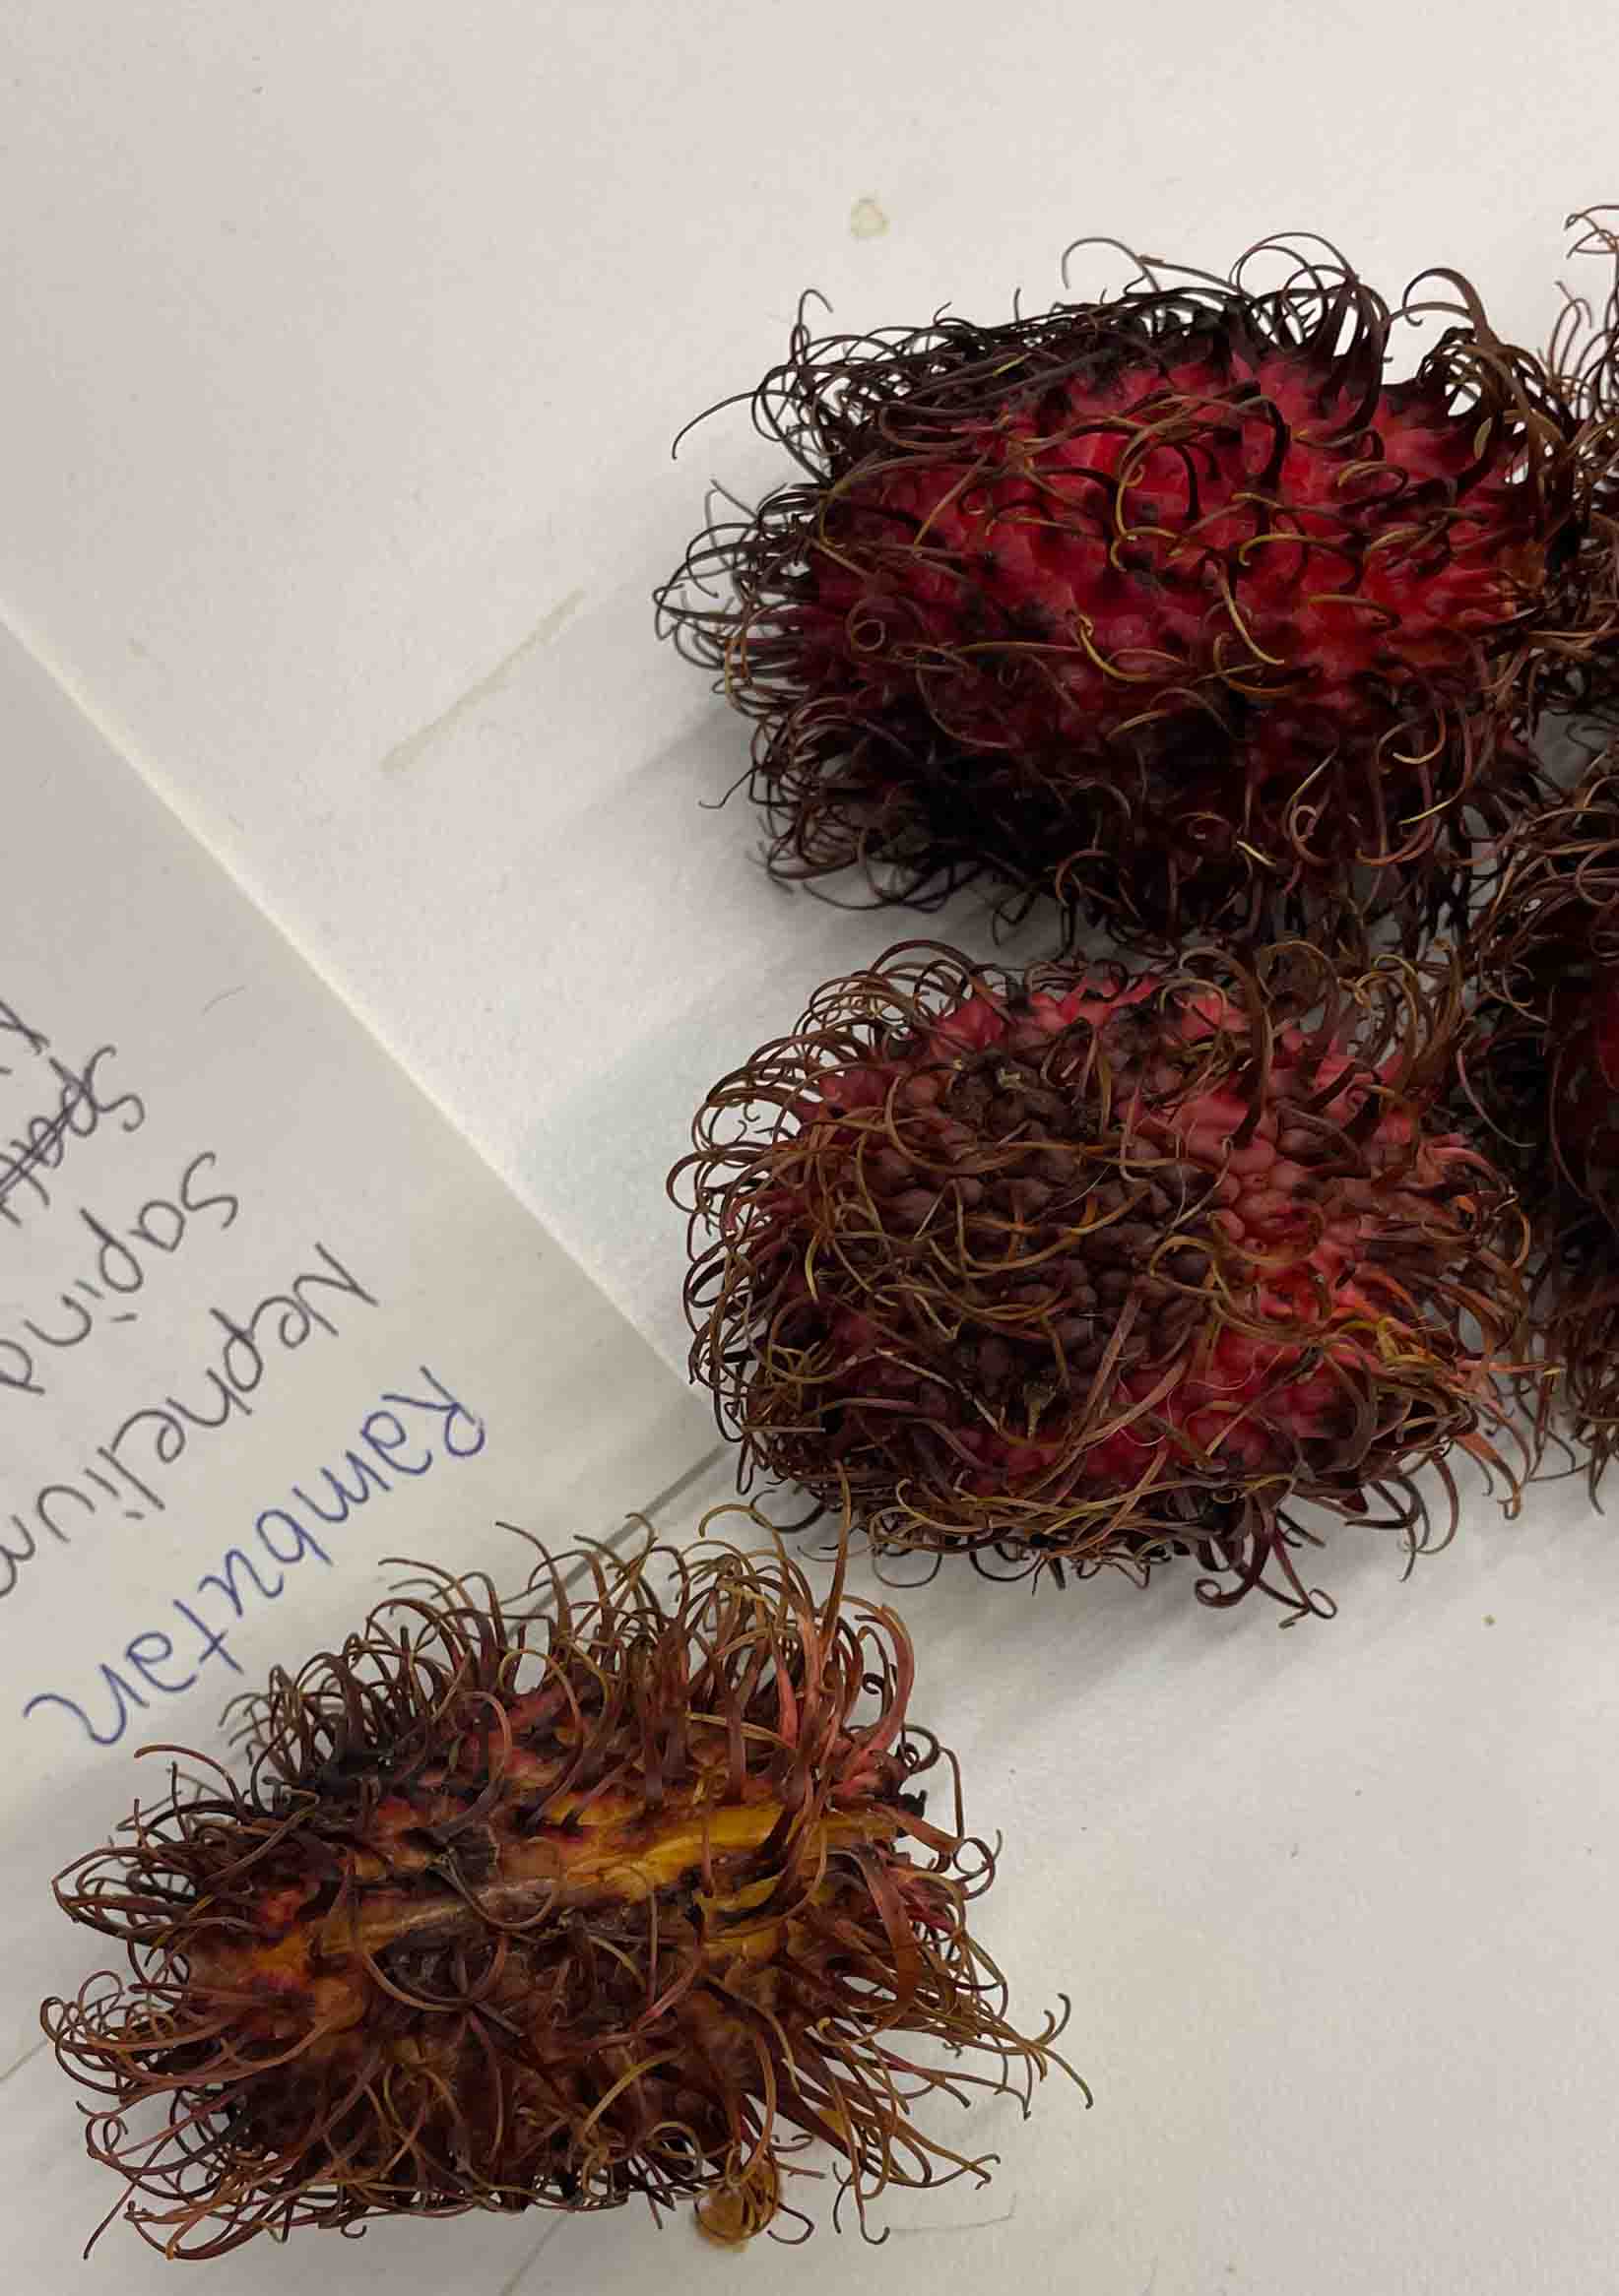 Rambutan
Nephelium
Sapind